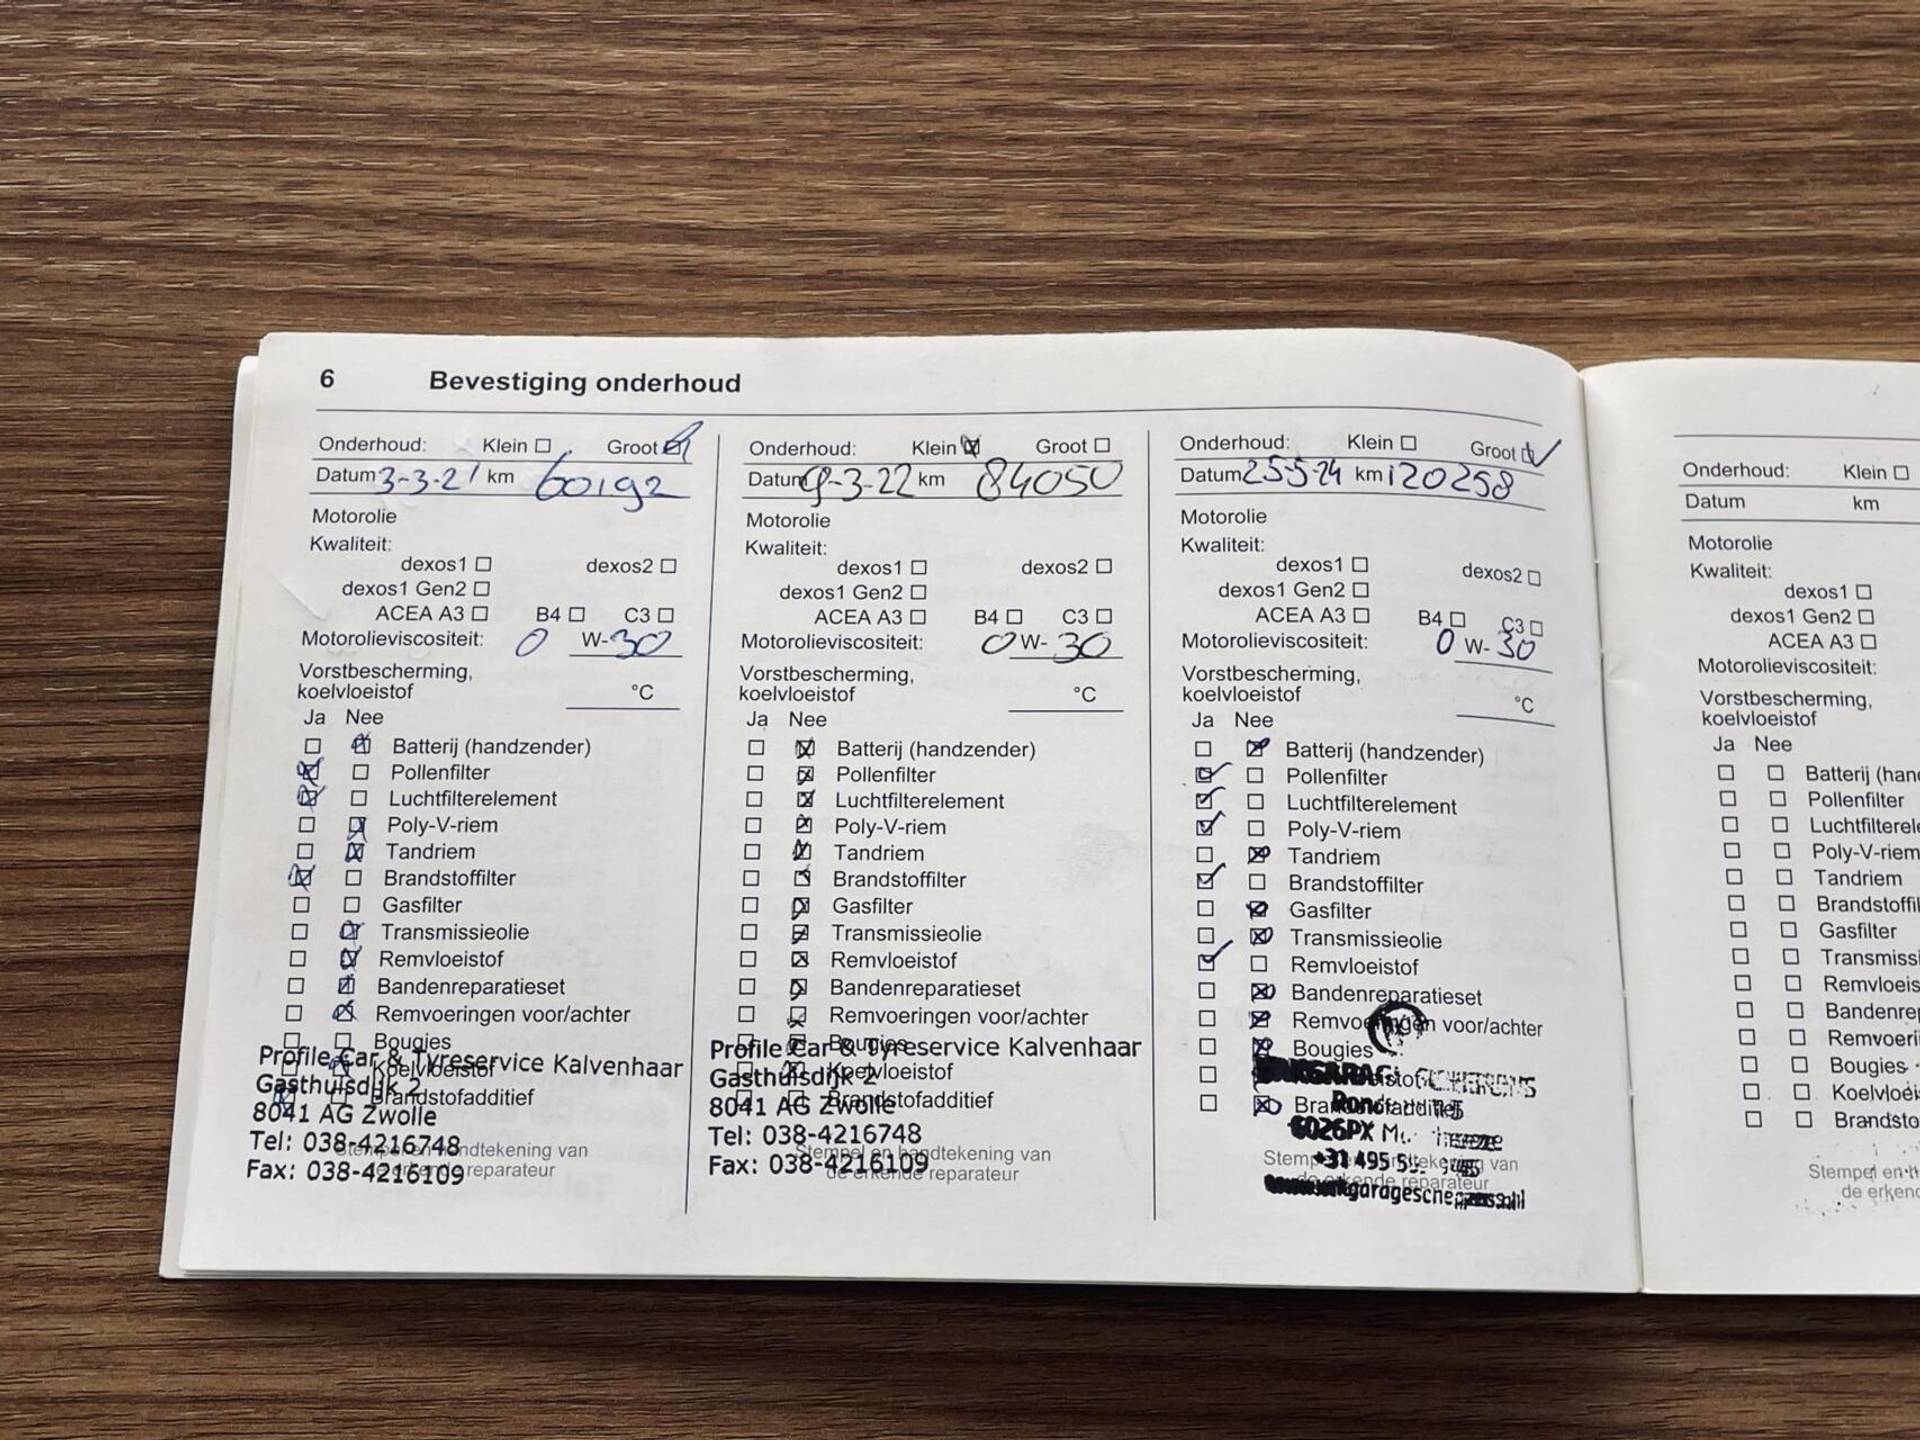 6 Bevestiging onderhoud
Onderhoud: Klein Groot
Datum 3-3-21 km 60192
Motorolie
Kwaliteit:
dexos1 dexos2
dexos1 Gen2
ACEA A3 B4 C3
Motorolieviscositeit: 0 W-30
Vorstbescherming,
koelvloeistof °C
Ja Nee
Batterij (handzender)
Pollenfilter
Luchtfilterelement
Poly-V-riem
Tandriem
Brandstoffilter
Gasfilter
Transmissieolie
Remvloeistof
Bandenreparatieset
Remvoeringen voor/achter
Bougies
Koelvloeistof
Brandstofadditief
Profile Car & Tyreservice Kalvenhaar
Gasthuisdijk 2
8041 AG Zwolle
Tel: 038-4216748
Fax: 038-4216109
Stempel en handtekening van
de erkende reparateur
Onderhoud: Klein Groot
Datum 9-3-22 km 84050
Motorolie
Kwaliteit:
dexos1 dexos2
dexos1 Gen2
ACEA A3 B4 C3
Motorolieviscositeit: 0 W-30
Vorstbescherming,
koelvloeistof °C
Ja Nee
Batterij (handzender)
Pollenfilter
Luchtfilterelement
Poly-V-riem
Tandriem
Brandstoffilter
Gasfilter
Transmissieolie
Remvloeistof
Bandenreparatieset
Remvoeringen voor/achter
Bougies
Koelvloeistof
Brandstofadditief
Profile Car & Tyreservice Kalvenhaar
Gasthuisdijk 2
8041 AG Zwolle
Tel: 038-4216748
Fax: 038-4216109
Stempel en handtekening van
de erkende reparateur
Onderhoud: Klein Groot
Datum 25-5-24 km 120258
Motorolie
Kwaliteit:
dexos1 dexos2
dexos1 Gen2
ACEA A3 B4 C3
Motorolieviscositeit: 0 W-30
Vorstbescherming,
koelvloeistof °C
Ja Nee
Batterij (handzender)
Pollenfilter
Luchtfilterelement
Poly-V-riem
Tandriem
Brandstoffilter
Gasfilter
Transmissieolie
Remvloeistof
Bandenreparatieset
Remvoeringen voor/achter
Bougies
Brandstofadditief
6026PX
+31 495
Stempel en handtekening van
de erkende reparateur
Onderhoud: Klein
Datum km
Motorolie
Kwaliteit:
dexos1
dexos1 Gen2
ACEA A3
Motorolieviscositeit:
Vorstbescherming,
koelvloeistof
Ja Nee
Batterij (han
Pollenfilter
Luchtfilterel
Poly-V-riem
Tandriem
Brandstoffil
Gasfilter
Transmissi
Remvloeis
Bandenre
Remvoeri
Bougies
Koelvloei
Brandsto
Stempel en h
de erken